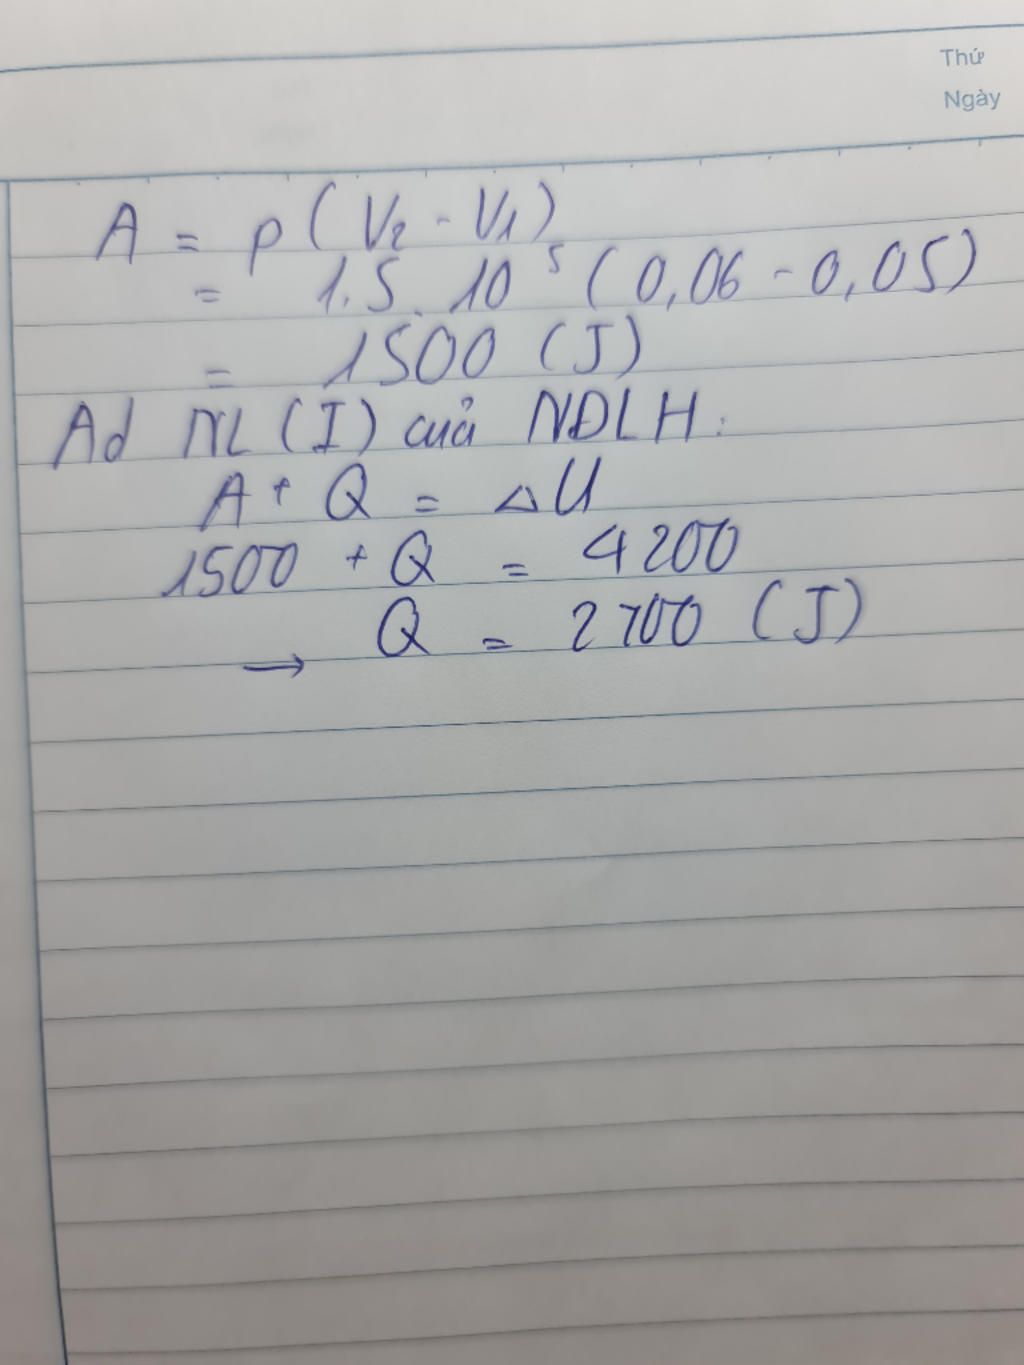 Thứ
Ngày
A = p(V₂ - V₁)
= 1.5.10⁵(0,06 - 0,05)
= 1500 (J)
Ad NL (I) của NĐLH:
A + Q = ΔU
1500 + Q = 4200
→ Q = 2700 (J)